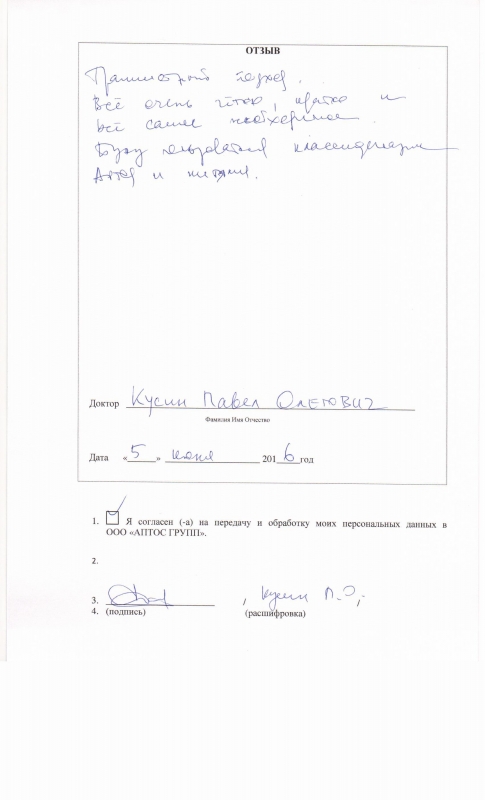 ОТЗЫВ
подход.
Всё очень чётко, кратко и
всё самое необходимое.
Буду пользоваться
и нитями.
Доктор Кусин Павел Олегович
Фамилия Имя Отчество
Дата «5» июня 2016 год
1. Я согласен (-а) на передачу и обработку моих персональных данных в
ООО «АПТОС ГРУПП».
2.
3. , Кусин П.О.
4. (подпись) (расшифровка)